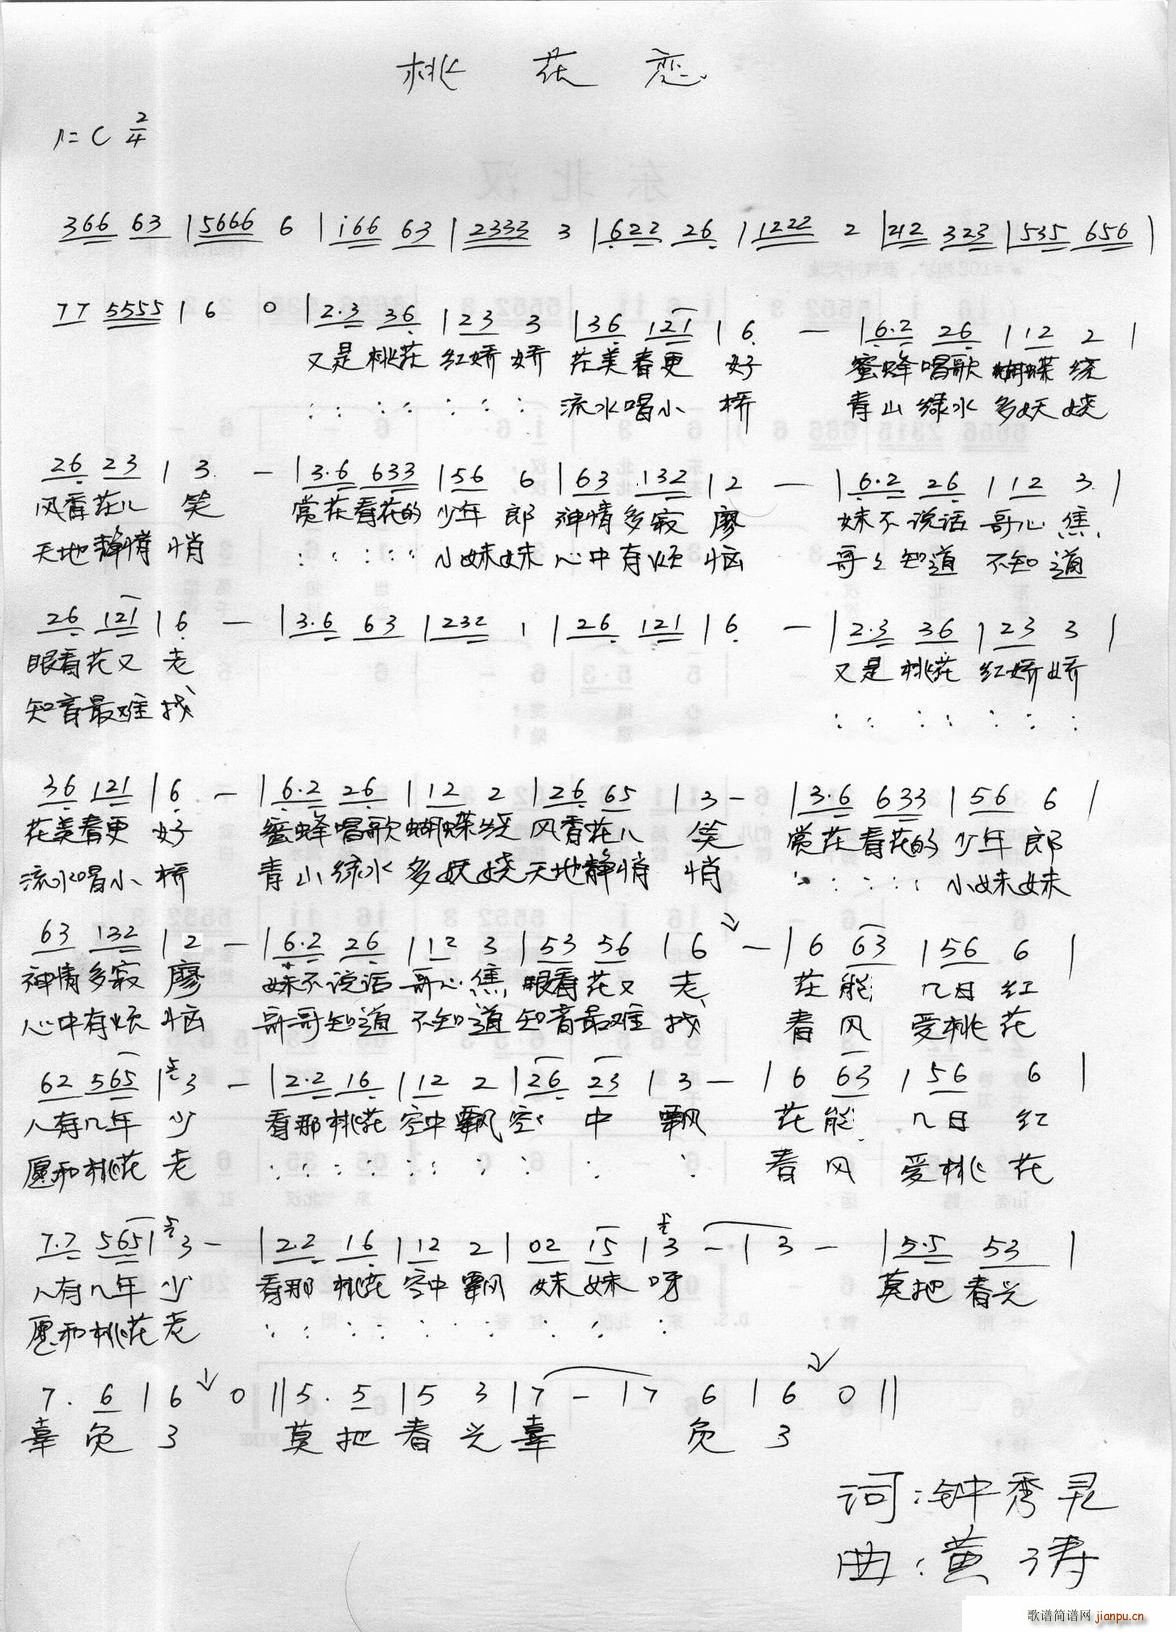 桃 花 恋
1=C 2/4
366 63 | 5666 6 | i66 63 | 2333 3 | 622 26 | 1222 2 | 212 323 | 535 656 |
77 5555 | 6 0 | 2·3 36 | 23 3 | 36 121 | 6 — | 6·2 26 | 12 2 |
又是桃花 红娇娇 花美春更 好 蜜蜂唱歌 蝴蝶绕
: : : : : : : 流水唱小 桥 青山绿水 多妖娆
26 23 | 3 — | 3·6 633 | 56 6 | 63 132 | 2 — | 6·2 26 | 12 3 |
风香花儿 笑 赏花看花的 少年 郎 神情多寂 廖 妹不说话 哥心 焦
天地静悄 悄 : : : : : 小妹妹 心中有烦 恼 哥哥知道 不知道
26 121 | 6 — | 3·6 63 | 232 1 | 26 121 | 6 — | 2·3 36 | 23 3 |
眼看花又 老 又是桃花 红娇娇
知音最难 找 : : : : : : :
36 121 | 6 — | 6·2 26 | 12 2 | 26 65 | 3 — | 3·6 633 | 56 6 |
花美春更 好 蜜蜂唱歌 蝴蝶绕 风香花儿 笑 赏花看花的 少年 郎
流水唱小 桥 青山绿水 多妖娆 天地静悄 悄 : : : : : 小妹妹
63 132 | 2 — | 6·2 26 | 12 3 | 53 56 | 6 — | 6 63 | 56 6 |
神情多寂 廖 妹不说话 哥心 焦 眼看花又 老 花 能 几日 红
心中有烦 恼 哥哥知道 不知道 知音最难 找 春 风 爱桃 花
62 565 | 3 — | 2·2 16 | 12 2 | 26 23 | 3 — | 6 63 | 56 6 |
人有几年 少 看那桃花 空中飘 空 中 飘 花 能 几日 红
愿和桃花 老 : : : : : : : : : : 春 风 爱桃 花
7·7 565 | 3 — | 2·2 16 | 12 2 | 02 15 | 3 — | 3 — | 5·5 53 |
人有几年 少 看那 桃花 空中 飘 妹 妹 呀 莫把 春光
愿和桃花 老 : : : : : : : : : :
7· 6 | 6 0 || 5· 5 | 5 3 | 7 — | 7 6 | 6 0 ||
辜 负 了 莫 把 春 光 辜 负 了
词:钟秀灵
曲:黄 涛
歌谱简谱网 jianpu.cn